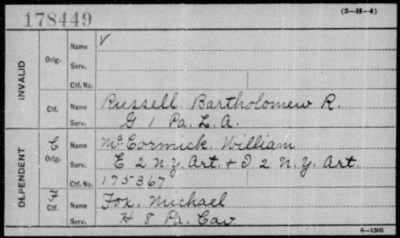 178449
(3-H-4)
INVALID
Orig.
Name V
Serv.
Ctf. No.
Ctf.
Name Russell Bartholomew R.
Serv. G 1 Pa. L. A.
DEPENDENT
C
Orig.
Name McCormick, William
Serv. E 2 N.Y. Art. & I 2 N.Y. Art.
Ctf. No. 175367
Ctf.
Name Fox, Michael
Serv. H 8 Pa. Cav